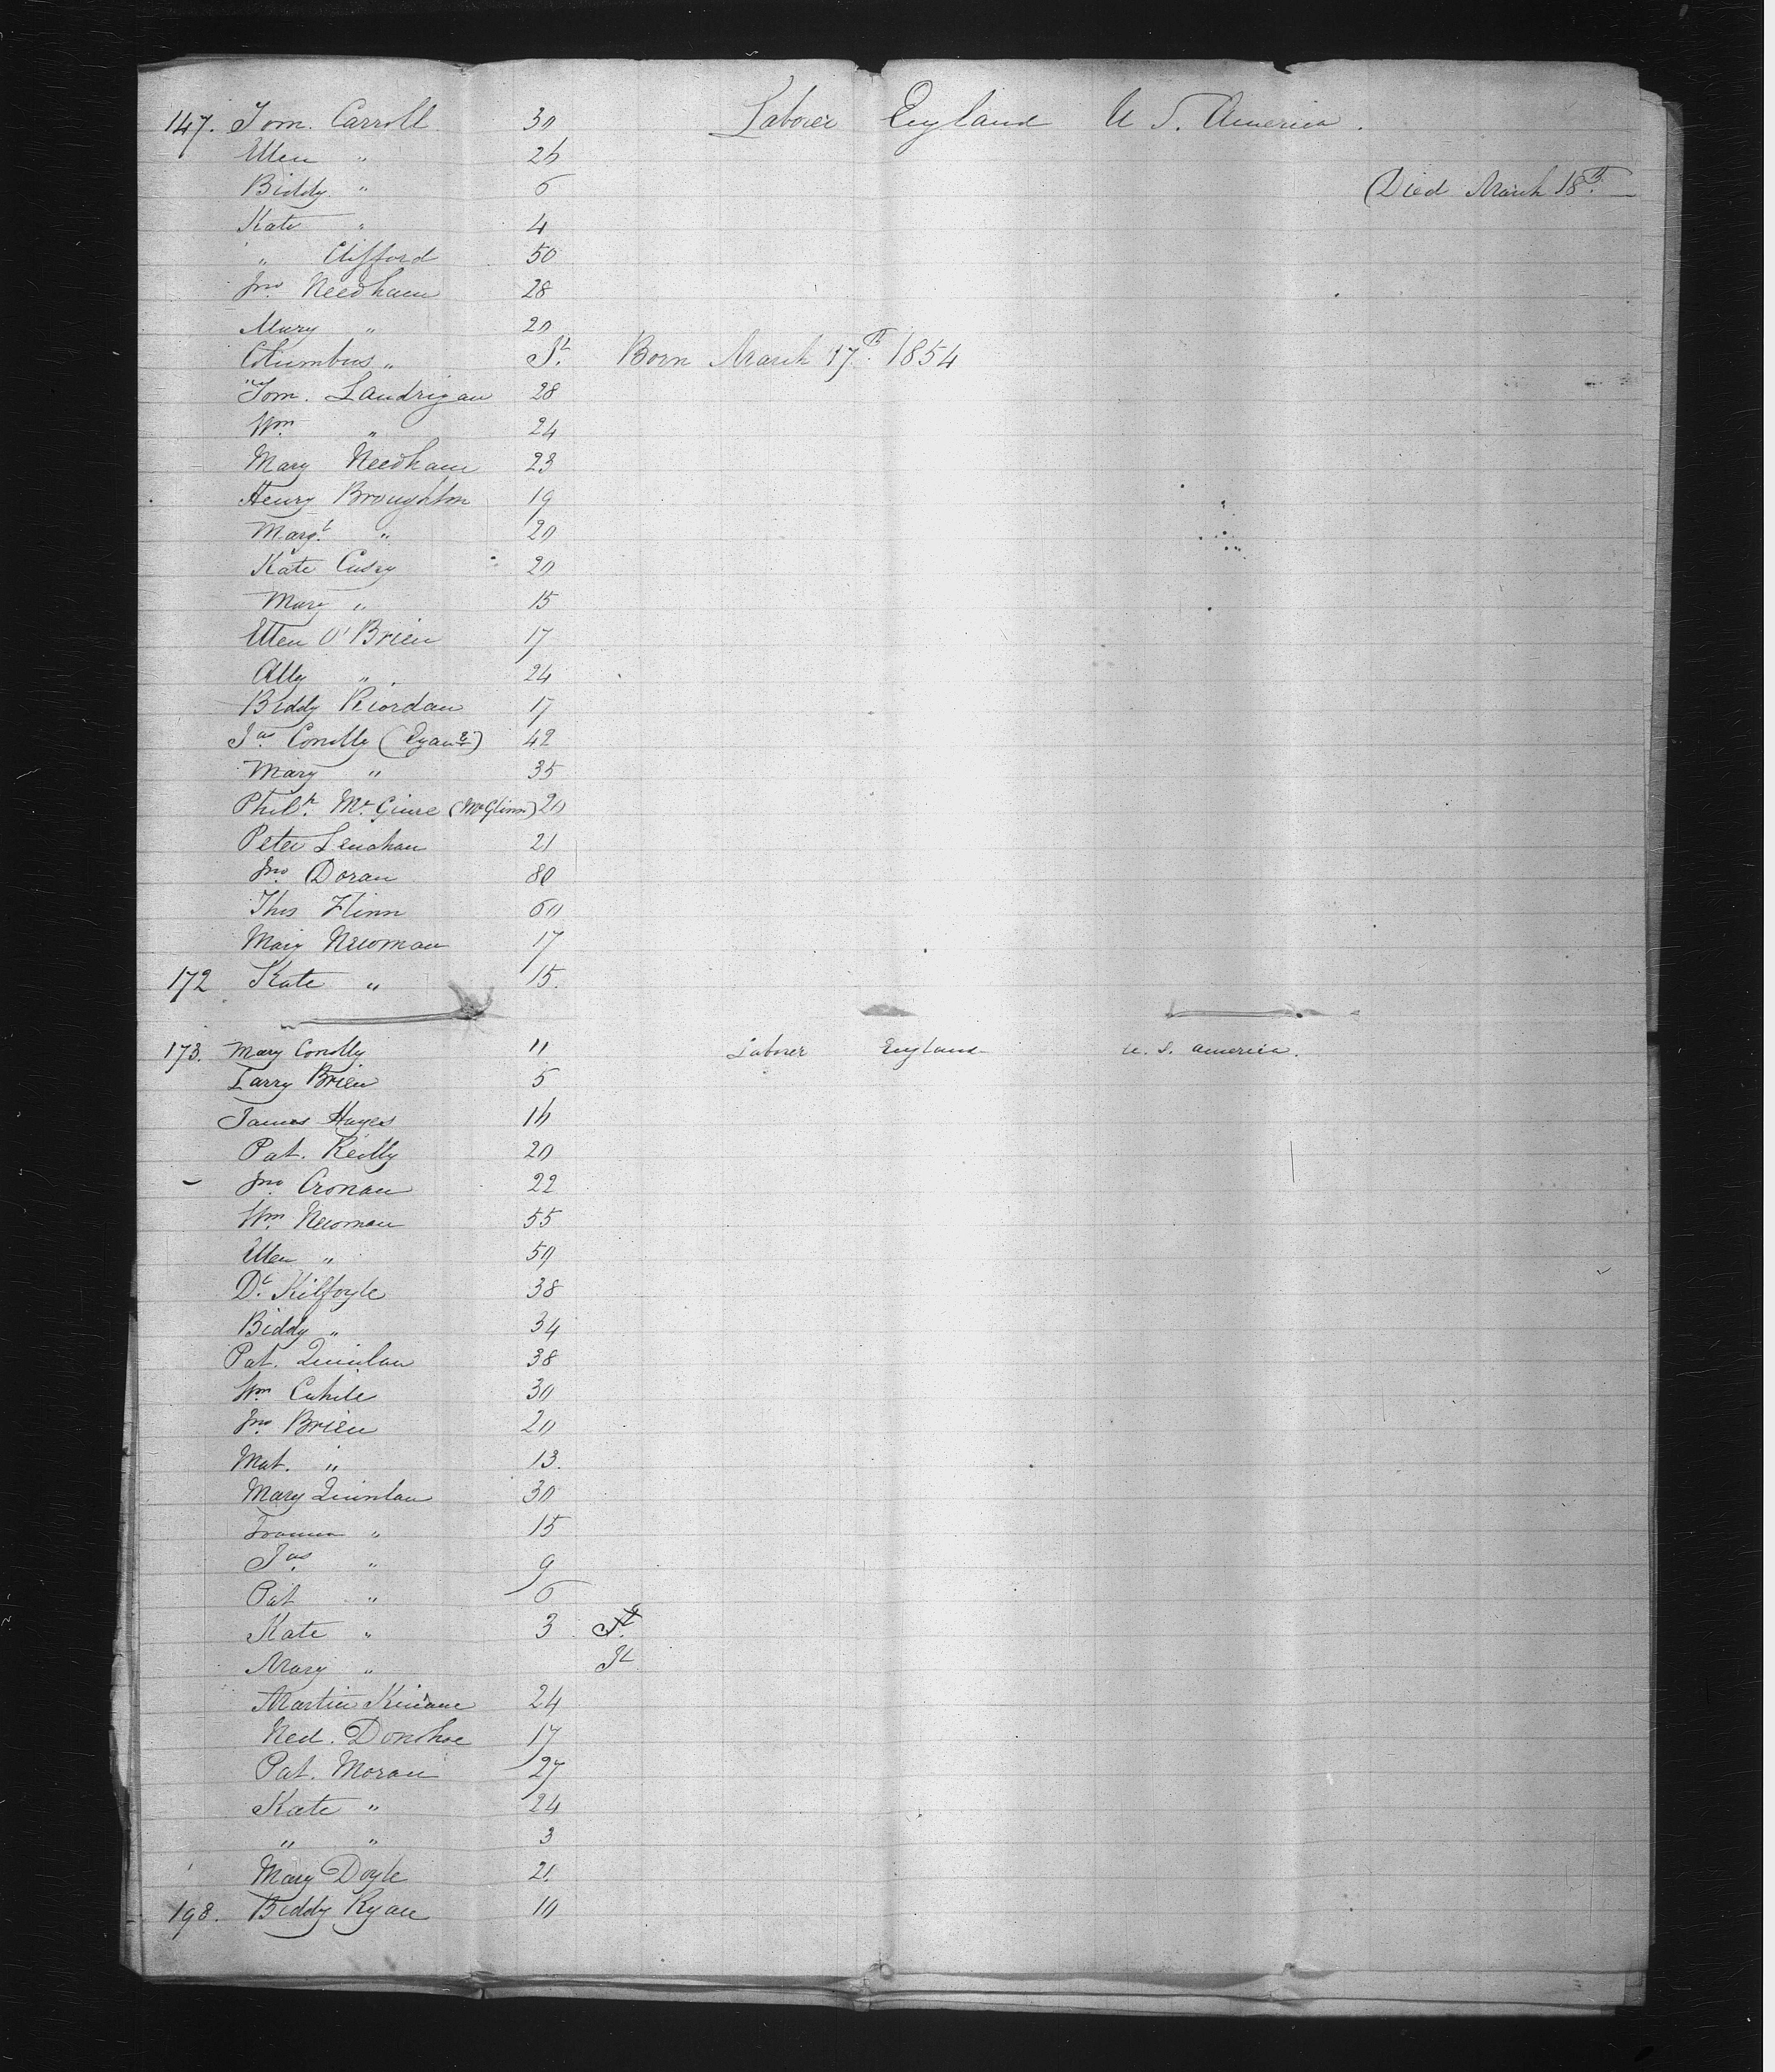 147. Tom. Carroll 30 Laborer England U S. America.
Ellen " 26
Biddy " 6 Died March 18th.
Kate " 4
" Clifford 50
Jno. Needham 28
Mary " 20
Columbus " It. Born March 17th. 1854
Tom. Landrigan 28
Wm " 24
Mary Needham 23
Henry Broughton 19
Margt. " 20
Kate Cusey 20
Mary " 15
Ellen O'Brien 17
Ally " 24
Biddy Riordan 17
Jas. Conolly 42
Mary " 35
Mc. Guire (McGlinn) 20
Peter Lenahan 21
Jno. Doran 80
Thos Flinn 60
Mary Newman 17
172 Kate " 15.
173. Mary Conolly 11 Laborer England U. S. America.
Larry Brien 5
James Hayes 16
Pat. Reilly 20
Jno. Cronan 22
Wm. Newman 55
Ellen " 50
Dl. Kilfoyle 38
Biddy " 34
Pat. Quinlan 38
Wm 30
Jno. Brien 20
Mat. " 13.
Mary Quinlan 30
" 15
Jas. " 9
Pat " 6
Kate " 3 It.
Mary " It
Martin Kinane 24
Ned. Donohoe 17
Pat. Moran 27
Kate " 24
" " 3
Mary Doyle 21.
198. Biddy Ryan 10